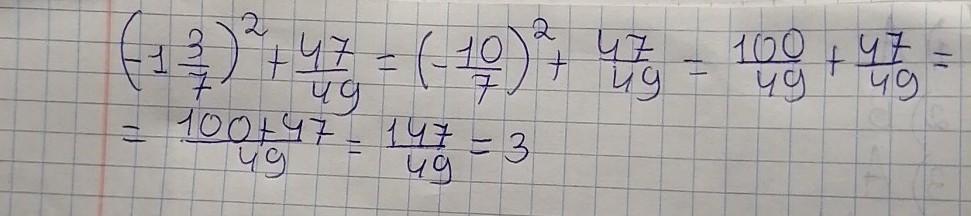 (-1 3/7)² + 47/49 = (-10/7)² + 47/49 = 100/49 + 47/49 =
= 100+47/49 = 147/49 = 3